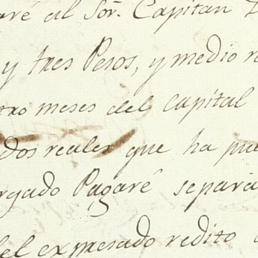 aré al Sor. Capitan
y tres Pesos, y medio r
tro meses del Capital
dos reales que ha pu
rgado Pagaré separa
del expresado redito